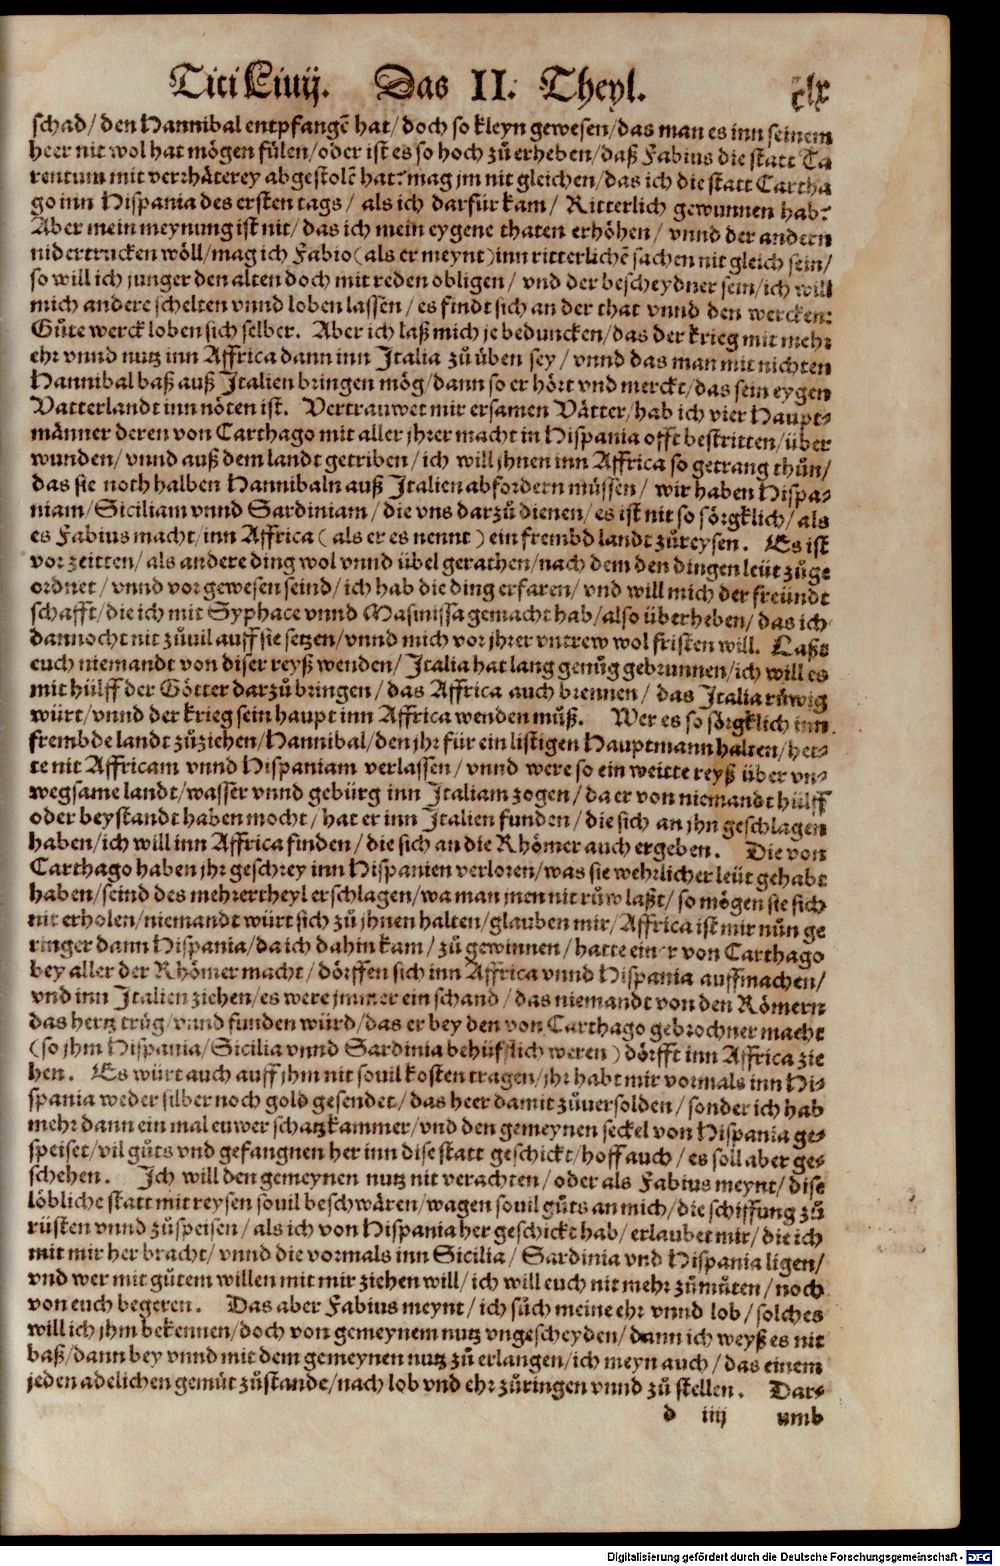 Titi Liuij. Das II. Theyl. clx
schad/ den Hannibal entpfangē hat/ doch so kleyn gewesen/ das man es inn seinem
heer nit wol hat mögen fülen/ oder ist es so hoch zů erheben/ daß Fabius die statt Ta
rentum mit verrhäterey abgestolē hat? mag jm nit gleichen/ das ich die statt Cartha
go inn Hispania des ersten tags/ als ich darfür kam/ Ritterlich gewunnen hab?
Aber mein meynung ist nit/ das ich mein eygene thaten erhöhen/ vnnd der andern
nidertrucken wöll/ mag ich Fabio (als er meynt) inn ritterlichē sachen nit gleich sein/
so will ich junger den alten doch mit reden obligen/ vnd der bescheydner sein/ ich will
mich andere schelten vnnd loben lassen/ es findt sich an der that vnnd den wercken:
Gůte werck loben sich selber. Aber ich laß mich je beduncken/ das der krieg mit mehr
ehr vnnd nutz inn Affrica dann inn Italia zů üben sey/ vnnd das man mit nichten
Hannibal baß auß Italien bringen mög/ dann so er hört vnd merckt/ das sein eygen
Vatterlandt inn nöten ist. Vertrauwet mir ersamen Vätter/ hab ich vier Haupt-
männer deren von Carthago mit aller jhrer macht in Hispania offt bestritten/ über
wunden/ vnnd auß dem landt getriben/ ich will jhnen inn Affrica so getrang thůn/
das sie noth halben Hannibaln auß Italien abfordern müssen/ wir haben Hispa-
niam/ Siciliam vnnd Sardiniam/ die vns darzů dienen/ es ist nit so sörgklich/ als
es Fabius macht/ inn Affrica ( als er es nennt ) ein frembd landt zůreysen. Es ist
vor zeitten/ als andere ding wol vnnd übel gerathen/ nach dem den dingen leüt zůge
ordnet/ vnnd vor gewesen seind/ ich hab die ding erfaren/ vnd will mich der freündt
schafft/ die ich mit Syphace vnnd Masinissa gemacht hab/ also überheben/ das ich
dannocht nit zůuil auff sie setzen/ vnnd mich vor jhrer vntrew wol fristen will. Laßs
euch niemandt von diser reyß wenden/ Italia hat lang genůg gebrunnen/ ich will es
mit hülff der Götter darzů bringen/ das Affrica auch brennen/ das Italia růwig
würt/ vnnd der krieg sein haupt inn Affrica wenden můß. Wer es so sörgklich inn
frembde landt zůziehen/ Hannibal/ den jhr für ein listigen Hauptmann halten/ het-
te nit Affricam vnnd Hispaniam verlassen/ vnnd were so ein weitte reyß über vn-
wegsame landt/ wasser vnnd gebürg inn Italiam zogen/ da er von niemandt hülff
oder beystandt haben mocht/ hat er inn Italien funden/ die sich an jhn geschlagen
haben/ ich will inn Affrica finden/ die sich an die Rhömer auch ergeben. Die von
Carthago haben jhr geschrey inn Hispanien verloren/ was sie wehrlicher leüt gehabt
haben/ seind des mehrertheyl erschlagen/ wa man jnen nit růw laßt/ so mögen sie sich
nit erholen/ niemandt würt sich zů jhnen halten/ glauben mir/ Affrica ist mir nůn ge
ringer dann Hispania/ da ich dahin kam/ zů gewinnen/ hatte einer von Carthago
bey aller der Rhömer macht/ dörffen sich inn Affrica vnnd Hispania auffmachen/
vnd inn Italien ziehen/ es were jmmer ein schand/ das niemandt von den Römern
das hertz trůg/ vnnd funden würd/ das er bey den von Carthago gebrochner macht
(so jhm Hispania/ Sicilia vnnd Sardinia behüfflich weren ) dörfft inn Affrica zie
hen. Es würt auch auff jhm nit souil kosten tragen/ jhr habt mir vormals inn Hi-
spania weder silber noch gold gesendet/ das heer damit zůuersolden/ sonder ich hab
mehr dann ein mal euwer schatzkammer/ vnd den gemeynen seckel von Hispania ge-
speiset/ vil gůts vnd gefangnen her inn dise statt geschickt/ hoff auch/ es soll aber ge-
schehen. Ich will den gemeynen nutz nit verachten/ oder als Fabius meynt/ dise
löbliche statt mit reysen souil beschwären/ wagen souil gůts an mich/ die schiffung zů
rüsten vnnd zůspeisen/ als ich von Hispania her geschickt hab/ erlaubet mir/ die ich
mit mir her bracht/ vnnd die vormals inn Sicilia/ Sardinia vnd Hispania ligen/
vnd wer mit gůtem willen mit mir ziehen will/ ich will euch nit mehr zůmůten/ noch
von euch begeren. Das aber Fabius meynt/ ich sůch meine ehr vnnd lob/ solches
will ich jhm bekennen/ doch von gemeynem nutz vngescheyden/ dann ich weyß es nit
baß/ dann bey vnnd mit dem gemeynen nutz zů erlangen/ ich meyn auch/ das einem
jeden adelichen gemůt zůstande/ nach lob vnd ehr zůringen vnnd zů stellen. Dar-
d iiij umb
Digitalisierung gefördert durch die Deutsche Forschungsgemeinschaft - DFG